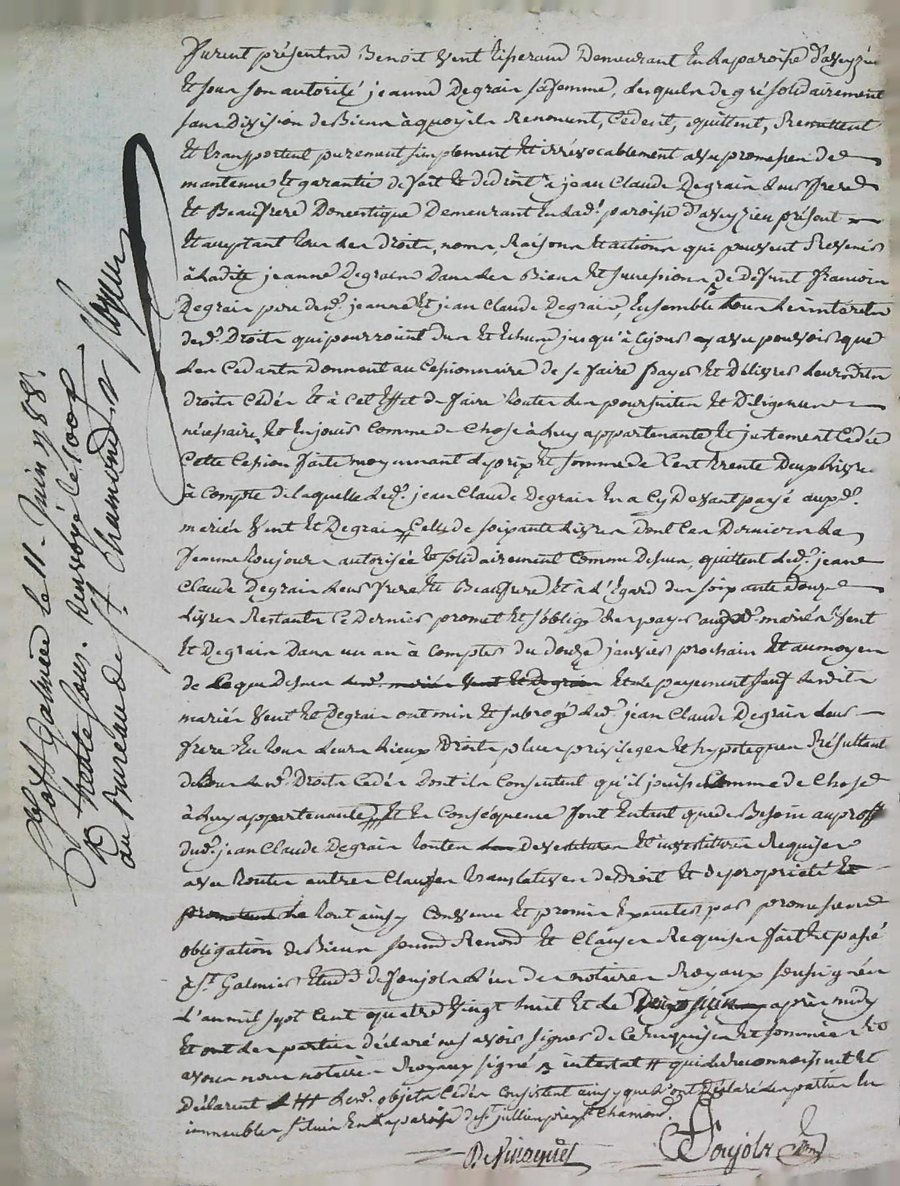 furent présents Benoit Vent tisserand Demeurant En la paroisse d'aveyzieu
Et sous son autorité jeanne Degrain sa femme, lesquels de gré solidairement
sans Division de Biens à quoy ils Renoncent, Cèdent, quittent, Remettent
Et transportent purement simplement Et irrévocablement avec promesses de
maintenue Et garantie de fait Et de droit à jean Claude Degrain leur frere
Et Beaufrere Domestique Demeurant En lad. paroisse d'aveyzieu présent
Et acceptant tous les Droits, noms, Raisons Et actions qui peuvent Revenir
à ladite jeanne Degrain Dans les Biens Et succession de défunt françois
Degrain pere desd. jeanne Et jean Claude Degrain, Ensemble tous les intérêts
desd. Droits qui pourroient dus Et Echus jusqu'à ce jour avec pouvoir que
les Cedants donnent au Cessionnaire de se faire payer Et Délivrer leursdits
droits Cédés Et à Cet Effet de faire toutes les poursuites Et Diligences
nécessaires Et En jouir Comme de Chose à luy appartenante Et justement Cédée
Cette Cession faite moyennant le prix Et somme de Cent trente Deux livres
à Compte de laquelle led. jean Claude Degrain En a Cy Devant payé auxd.
mariés Vent Et Degrain Celle de soixante livres Dont Ces Derniers la
femme toujours autorisée Et solidairement Comme Dessus, quittent led. jean
Claude Degrain leur frere Et Beaufrere Et à l'Egard des soixante Douze
livres Restants Ce Dernier promet Et s'oblige les payer auxd. mariés Vent
Et Degrain Dans un an à Compter du douze janvier prochain Et au moyen
de ce que Dessus lesd. mariés Vent Et Degrain Et le payement sauf lesdits
mariés Vent Et Degrain ont mis Et subrogé led. jean Claude Degrain leur
frere En tous leurs lieux Droits places privileges Et hypoteques Résultant
de tous lesd. Droits Cédés Dont ils Consentent qu'il jouisse Comme de Chose
à luy appartenante Et En Conséquence font Entant que de Besoin au profit
dud. jean Claude Degrain toutes Devestitures Et investitures Requises
avec toutes autres Clauses translatives de Droit Et de propriété Et
tout ainsy Convenu Et promis Exécuter par promesse
obligation de Biens soumd Renond Et Clauses Requises fait Et passé
à St. Galmier Etude de Poujols l'un des notaires Royaux soussignés
l'an mil sept cent quatre Vingt huit Et le après midy
Et ont les parties déclaré ne savoir signer de Ce Enquises Et sommées
avons nous notaires Royaux signé intestat qui le reconnoissent Et
Déclarent lesd. objets Cédés Consistent ainsy que l'ont Déclaré les parties En
immeubles situés En la paroisse de St. jullien près St. Chamond
DeVinoquet Poujols
St. Galmier le 11 juin 1788.
trente sous. Renvoyé le 100e
au Bureau de St. Chamond